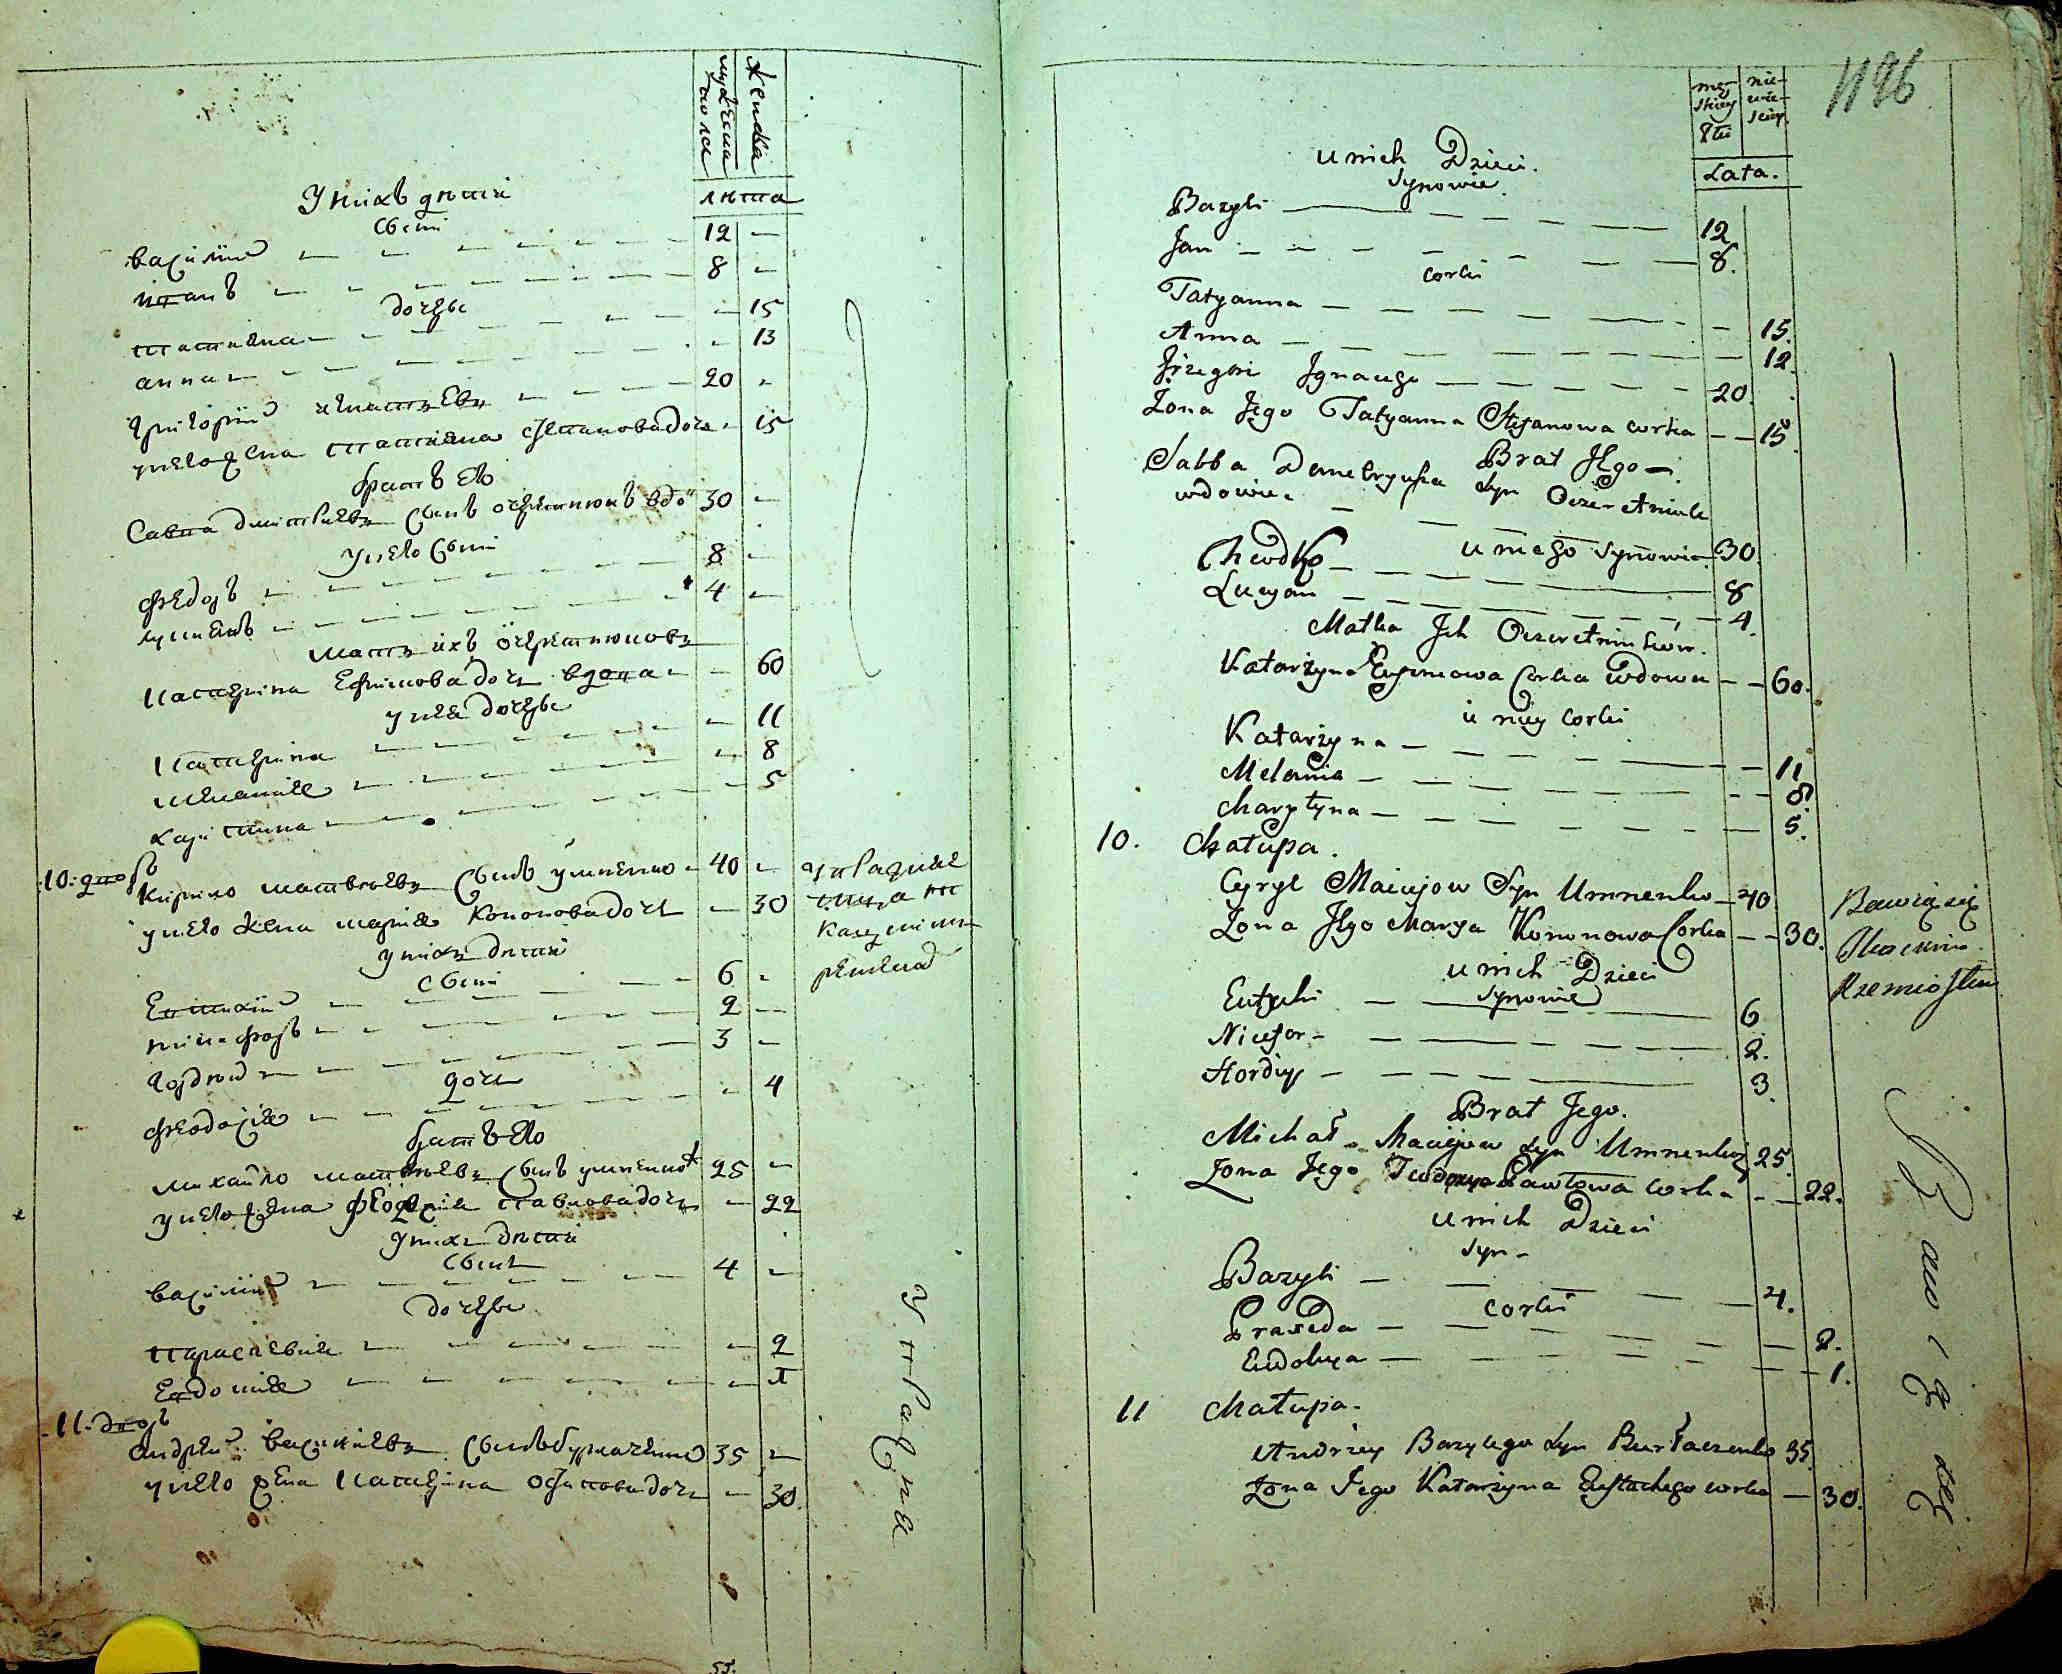 мужеска
пола
женска
лѣта
У нихъ дѣти
Сыни
василий 12
иванъ 8
дочери
татияна 15
анна 13
григорий игнатьевъ 20
у него жена татияна степановадочь 15
братъ его
Савва дмитриевъ сынъ очеретнюкъ вдо 30
у него сыни
федоръ 8
лукиянъ 4
мать ихъ очеретнюковъ
катерина Ефимова дочь вдова 60
у нея дочери
катерина 11
мелания 8
харитина 5
10. дворъ
кирило матвѣевъ сынъ умненко 40
у него жена мария кононова дочь 30
у нихъ дѣти
сыни
Евтихий 6
никифоръ 2
гордѣй 3
дочь
феодосия 4
братъ его
михайло матвѣевъ сынъ умненко 25
у него жена феодосия павлова дочь 22
у нихъ дѣти
сынъ
василий 4
дочери
параскевия 2
Евдокия 1
11. дворъ
андрей василиевъ сынъ бурлаченко 35
у него жена катерина осипова дочь 30.
55.
1196
męż
skiey
Płci
nie-
wie-
sciey
Lata.
u nich Dzieci.
Synowie.
Bazyli 12
Jan 8.
corki
Tatyanna 15.
Anna 12.
Grzegorz Ignacego 20.
Zona Jego Tatyanna Stefanowa corka 15
Brat Jego
Sabba Demetryusza Syn Oczeretniuk
wdowiec 30
u niego synowie
Chwedko 8
Lucyan 4.
Matka Ich Oczeretniukow.
Katarzyna Eufimowa Corka Wdowa 60.
u niey corki
Katarzyna 11
Melania 8.
Charytyna 5.
10. Chałupa.
Cyryl Maciejow Syn Umnenko 40
Zona Jego Marya Kononowa Corka 30.
Bawią się
Tkackim
Rzemiosłem
u nich Dzieci
synowie
Eutychi 6
Nicefor 2.
Hordiy 3.
Brat Jego.
Michał Maciejow Syn Umnenko 25.
Zona Jego Teodozya Pawłowa corka 22.
u nich Dzieci
Syn
Bazyli 4.
corki
Praxeda 2.
Eudokya 1.
11 Chałupa.
Andrzey Bazylego Syn Burłaczenko 35.
Zona Jego Katarzyna Eustachego corka 30.